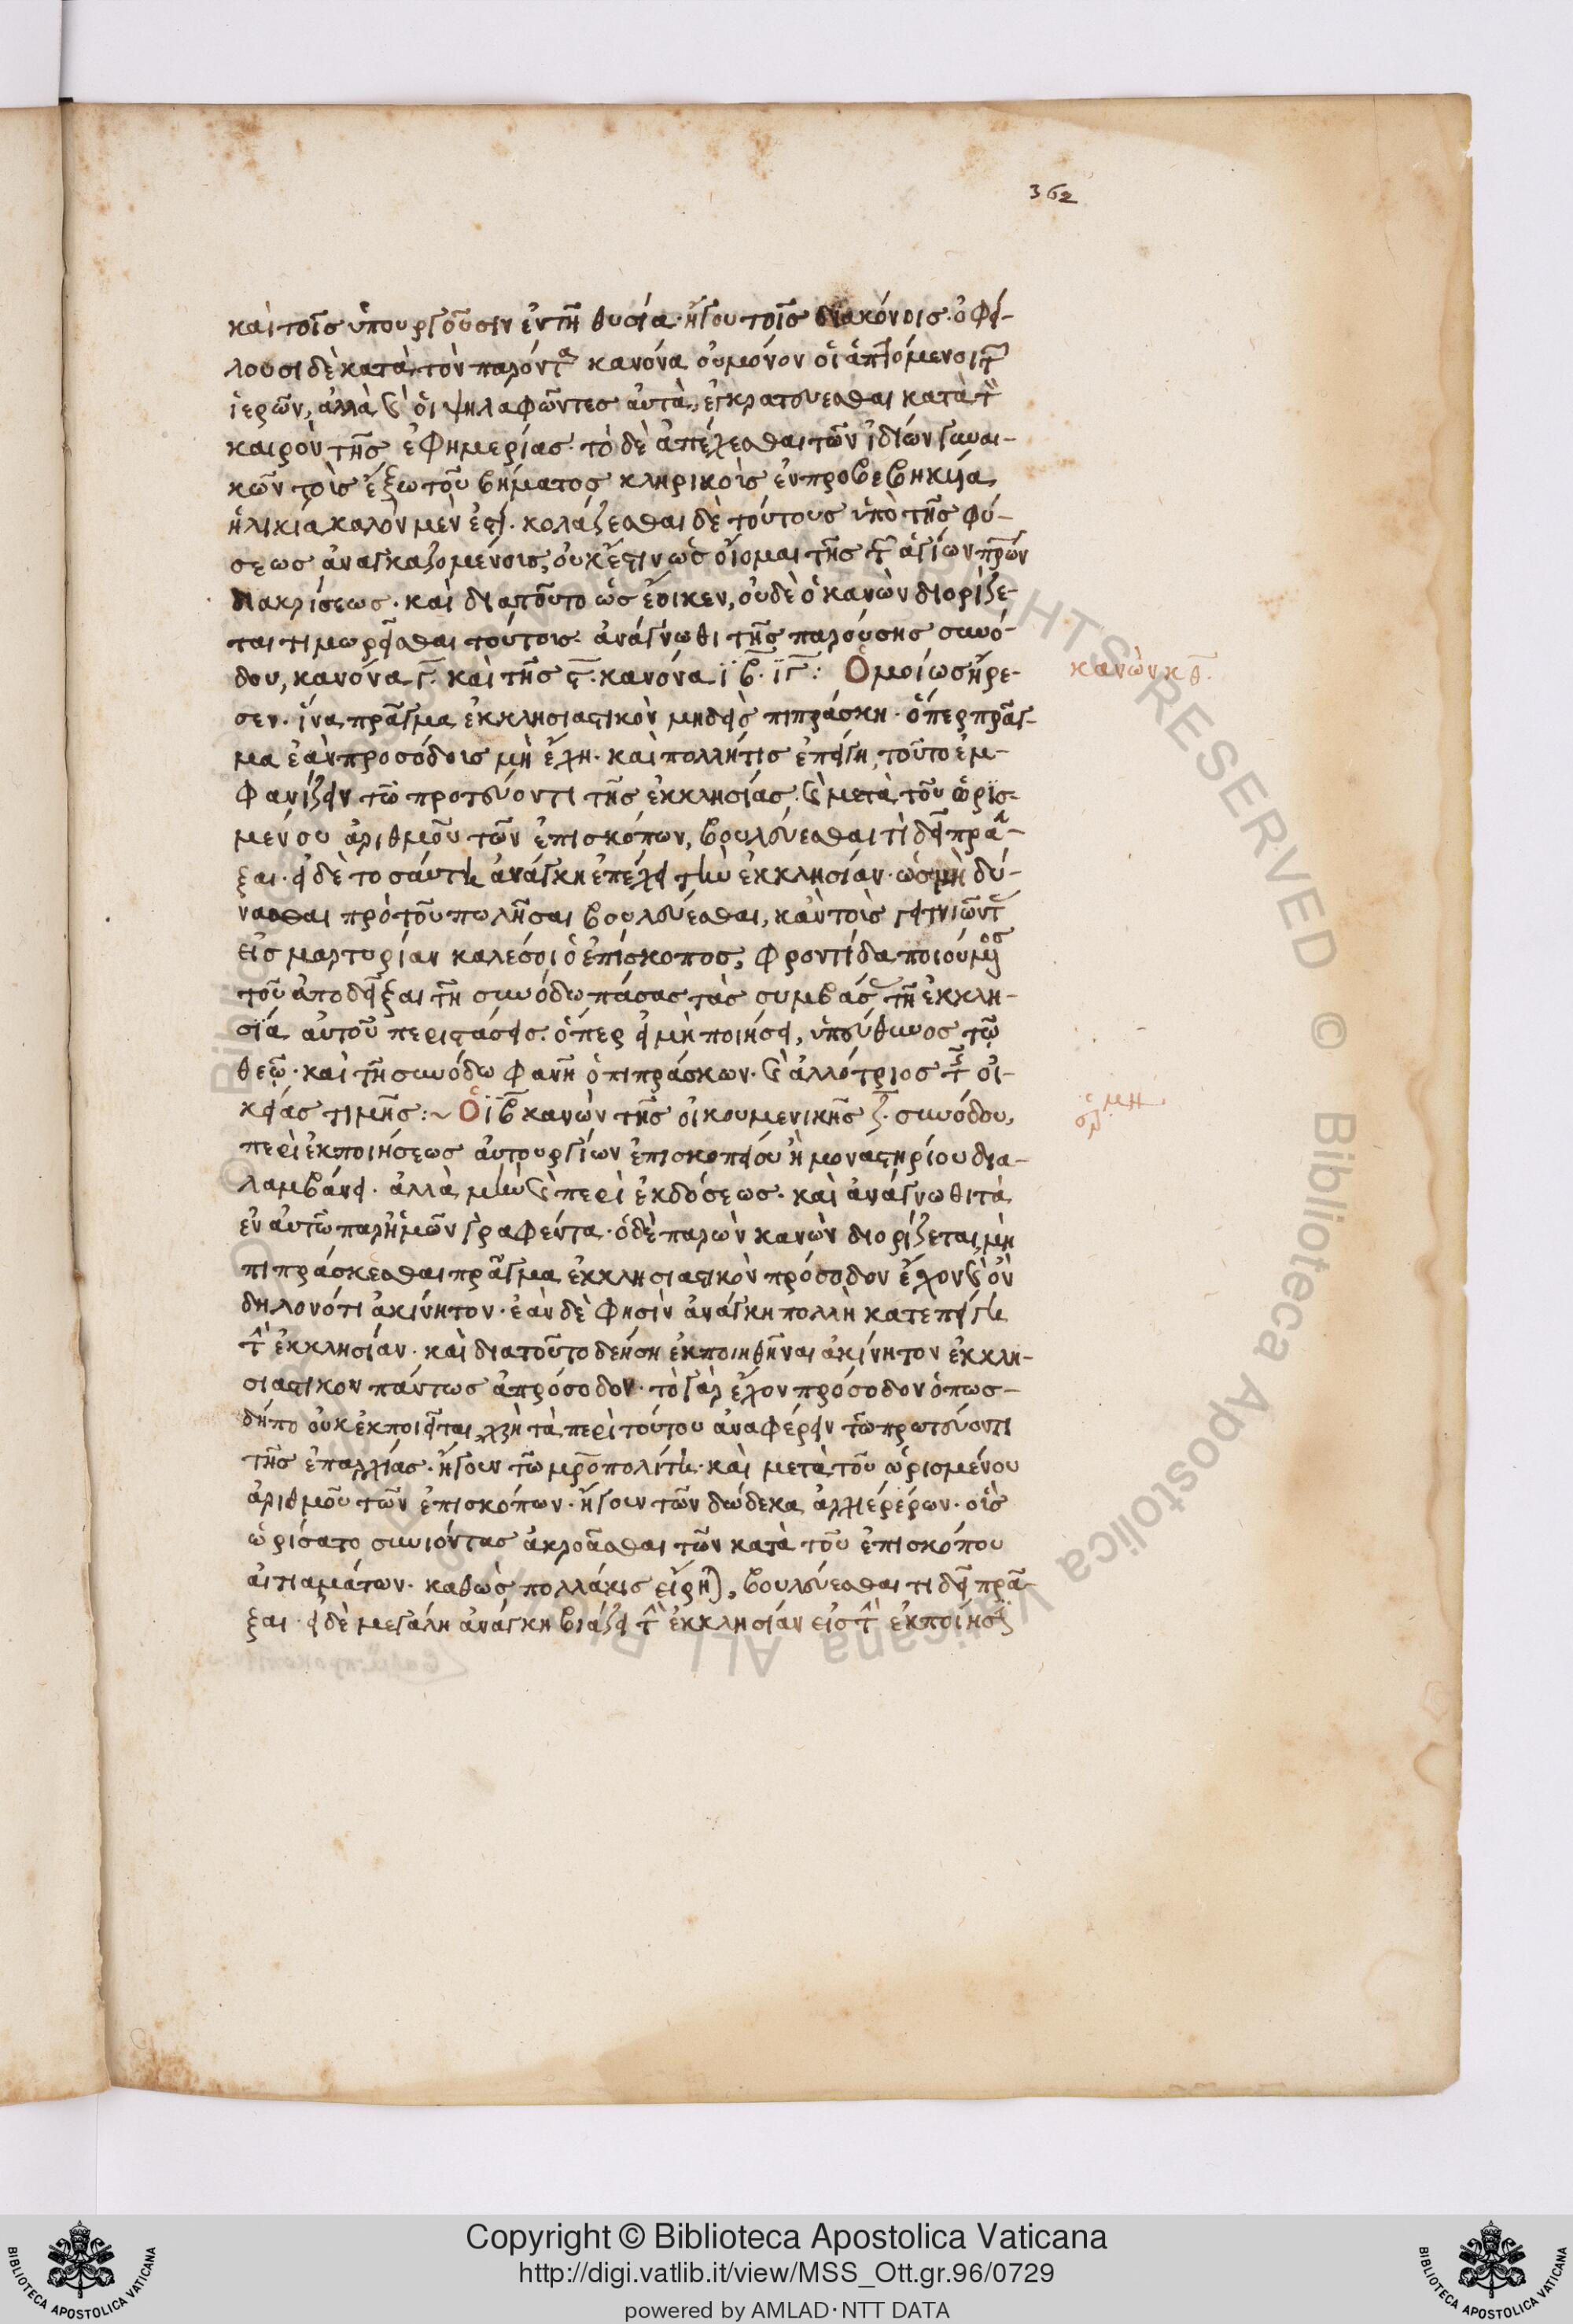 362
καὶ τοῖς ὑπουργοῦσιν ἐν τῇ θυσίᾳ· ἤγου τοῖς διακόνοις· ὀφεί-
λουσι δὲ κατὰ τὸν παρόντα κανόνα οὐ μόνον οἱ ἁπτόμενοι τῶν
ἱερῶν, ἀλλὰ καὶ οἱ ψηλαφῶντες αὐτὰ, ἐγκρατεύεσθαι κατὰ τὸν
καιρὸν τῆς ἐφημερίας· τὸ δὲ ἀπέχεσθαι τῶν ἰδίων γυναι-
κῶν τοῖς ἔξω τοῦ βήματος κληρικοῖς ἐν προβεβηκυίᾳ
ἡλικίᾳ καλὸν μέν ἐστι· κολάζεσθαι δὲ τούτους ὑπὸ τῆς φύ-
σεως ἀναγκαζομένοις, οὐκ ἔστιν ὡς οἶομαι τῆς τῶν ἁγίων πρῶν
διακρίσεως· καὶ διατοῦτο ὡς ἔοικεν, οὐδὲ ὁ κανὼν διορίζε-
ται τιμωρεῖσθαι τούτοις· ἀνάγνωθι τῆς παρούσης συνό-
δου, κανόνα γ· καὶ τῆς ς· κανόνα ϊβ· ϊγ: Ὁμοίως ἤρε-
κανὼν κθ·
σεν· ἵνα πρᾶγμα ἐκκλησιαστικὸν μηδεὶς πιπράσκη· ὅπερ πρᾶγ-
μα ἐὰν προσόδοις μὴ ἔχη· καὶ πολλή τις ἐπείγη, τοῦτο ἐμ-
φανίζειν τῶ πρωτεύοντι τῆς ἐκκλησίας· καὶ μετὰ τοῦ ὡρισ-
μένου ἀριθμοῦ τῶν ἐπισκόπων, βουλεύεσθαι τί δεῖ πρᾶ-
ξαι· εἰ δὲ τοσαύτη ἀνάγκη ἐπέχει τὴν ἐκκλησίαν· ὡς μὴ δύ-
νασθαι πρὸ τοῦ πωλῆσαι βουλεύεσθαι, κἂν τοῖς γειτνιῶντας
εἰς μαρτυρίαν καλέσοι ὁ ἐπίσκοπος, φροντίδα ποιούμενος
τοῦ ἀποδεῖξαι τῆ συνόδω πάσας τὰς συμβάσας τῆ ἐκκλη-
σία αὐτοῦ περιστάσεις· ὅπερ εἰ μὴ ποιήσει, ὑπεύθυνος τῶ
θεῶ· καὶ τῆ συνόδω φανῆ ὁ πιπράσκων· καὶ ἀλλότριος τῆς οἰ-
κείας τιμῆς:~ Ὁ ϊβ κανὼν τῆς οἰκουμενικῆς ζ· συνόδου,
περὶ ἐκποιήσεως αὐτουργίων ἐπισκοπείου ἢ μοναστηρίου δια-
λαμβάνει· ἀλλὰ μὴν καὶ περὶ ἐκδόσεως· καὶ ἀνάγνωθι τὰ
ἐν αὐτῶ παρ' ἡμῶν γραφέντα· ὁ δὲ παρὼν κανὼν διορίζεται, μὴ
πιπράσκεσθαι πρᾶγμα ἐκκλησιαστικὸν πρόσοδον ἔχον καὶ ὂν
δηλονότι ἀκίνητον· ἐὰν δὲ φησὶν ἀνάγκη πολλὴ κατεπείγη
τὴν ἐκκλησίαν· καὶ διατοῦτο δεήση ἐκποιηθῆναι ἀκίνητον ἐκκλη-
σιαστικον πάντως ἀπρόσοδον· τὸ γὰρ ἔχον πρόσοδον ὁπωσ-
δήπο οὐκ ἐκποιεῖται, χρὴ τὰ περὶ τούτου ἀναφέρειν τῶ πρωτεύοντι
τῆς ἐπαρχίας· ἤγουν τῶ μροπολίτη· καὶ μετὰ τοῦ ὡρισμένου
ἀριθμοῦ τῶν ἐπισκόπων· ἤγουν τῶν δώδεκα ἀρχιερέρων· οἷς
ὡρίσατο συνιόντας ἀκροᾶσθαι τῶν κατὰ τοῦ ἐπισκόπου
αἰτιαμάτων· καθὼς πολλάκις εἴρηται, βουλεύεσθαι τι δεῖ πρᾶ-
ξαι· εἰ δὲ μεγάλη ἀνάγκη βιάζει τὴν ἐκκλησίαν εἰς τὴν ἐκποίησιν
Copyright © Biblioteca Apostolica Vaticana
http://digi.vatlib.it/view/MSS_Ott.gr.96/0729
powered by AMLAD·NTT DATA
BIBLIOTECA APOSTOLICA VATICANA
BIBLIOTECA APOSTOLICA VATICANA